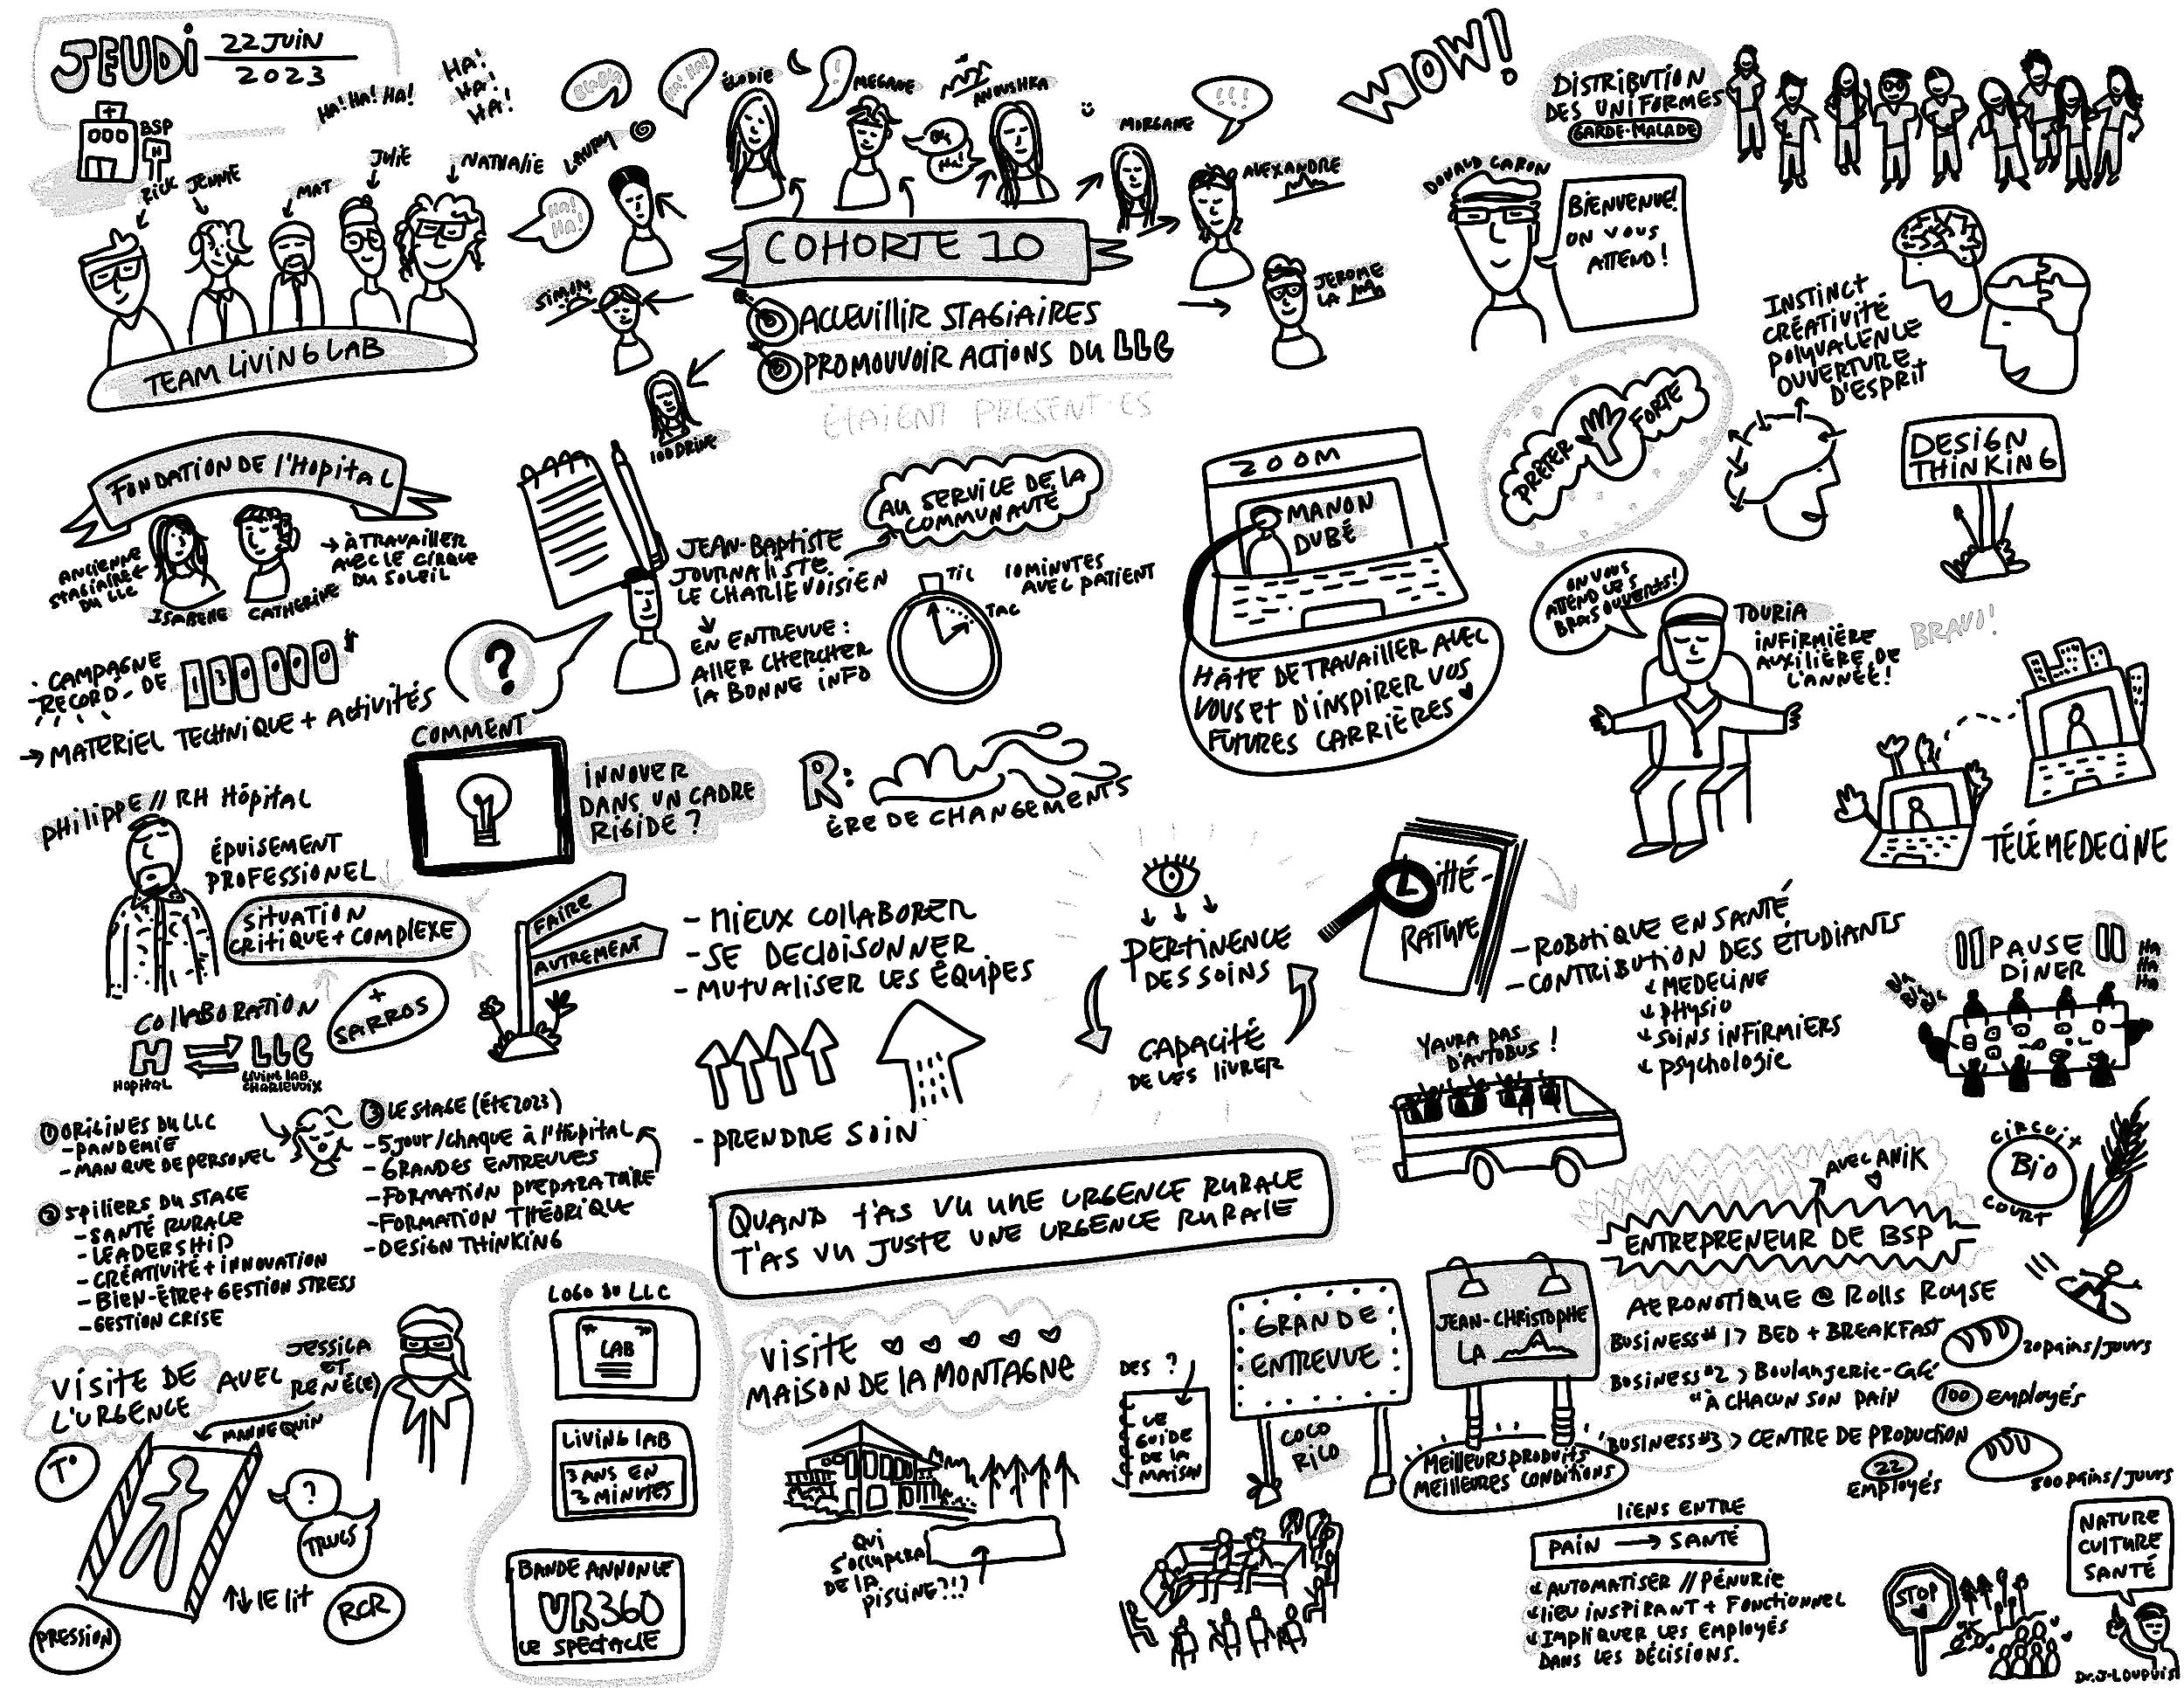 JEUDI 22 JUIN
2023
HA! HA! HA!
HA!
HA!
HA!
BSP
H
RICK
JENNIE
MAT
JULIE
NATHALIE
TEAM LIVING LAB
BLABLA
HA! HA!
LAURY
HA!
HA!
SIMON
ÉLODIE
!
MEGANE
ANOUSHKA
HA!
MORGANE
!!!
ALEXANDRE
JEROME
LA
COHORTE 10
ACCEUILLIR STAGIAIRES
PROMOUVOIR ACTIONS DU LLC
ÉTAIENT PRESENT·ES
100DRINE
WOW!
DISTRIBUTION
DES UNIFORMES
GARDE-MALADE
DONALD CARON
BIENVENUE!
ON VOUS
ATTEND!
INSTINCT
CRÉATIVITÉ
POLYVALENCE
OUVERTURE
D'ESPRIT
PRÊTER
FORTE
DESIGN
THINKING
FONDATION DE l'HOpital
ANCIENNE
STAGIAIRE
DU LLC
CATHERINE
→ À TRAVAILLER
AVEC LE CIRQUE
DU SOLEIL
· CAMPAGNE
RECORD DE
130000$
→ MATERIEL TECHNIQUE + ACTIVITÉS
JEAN-BAPTISTE
JOURNALISTE
LE CHARLEVOISIEN
EN ENTREVUE:
ALLER CHERCHER
LA BONNE INFO
AU SERVICE DE LA
COMMUNAUTÉ
TIC
TAC
10 MINUTES
AVEC PATIENT
ZOOM
MANON
DUBÉ
HÂTE DE TRAVAILLER AVEC
VOUS ET D'INSPIRER VOS
FUTURES CARRIÈRES
ON VOUS
ATTEND LES
BRAS OUVERTS!
TOURIA
INFIRMIÈRE
AUXILIÈRE DE
L'ANNÉE!
BRAVO!
TÉLÉMEDECINE
?
COMMENT
INNOVER
DANS UN CADRE
RIGIDE?
R:
ÈRE DE CHANGEMENTS
PHILIPPE // RH HÔpital
ÉPUISEMENT
PROFESSIONEL
SITUATION
CRITIQUE + COMPLEXE
COLLABORATION
+
SARROS
H
HOPITAL
LLC
LIVING LAB
CHARLEVOIX
FAIRE
AUTREMENT
- MIEUX COLLABORER
- SE DECLOISONNER
- MUTUALISER LES ÉQUIPES
- PRENDRE SOIN
PERTINENCE
DES SOINS
CAPACITÉ
DE LES LIVRER
LITTÉ-
RATURE
- ROBOTIQUE EN SANTÉ
- CONTRIBUTION DES ÉTUDIANTS
MEDECINE
PHYSIO
SOINS INFIRMIERS
PSYCHOLOGIE
PAUSE
DINER
BLA
BLA
BLA
HA
HA
HA
① ORIGINES DU LLC
- PANDEMIE
- MANQUE DE PERSONEL
② 5 PILIERS DU STAGE
- SANTÉ RURALE
- LEADERSHIP
- CRÉATIVITÉ + INNOVATION
- BIEN-ÊTRE + GESTION STRESS
- GESTION CRISE
③ LE STAGE (ÉTÉ 2023)
- 5 JOUR / CHAQUE À l'HÔPITAL
- GRANDES ENTREVUES
- FORMATION PREPARATOIRE
- FORMATION THÉORIQUE
- DESIGN THINKING
QUAND T'AS VU UNE URGENCE RURALE
T'AS VU JUSTE UNE URGENCE RURALE
YAURA PAS
D'AUTOBUS!
AVEC ANIK
ENTREPRENEUR DE BSP
CIRCUIT
BIO
COURT
AERONOTIQUE @ ROLLS ROYSE
BUSINESS #1 > BED + BREAKFAST
20 pains/jours
BUSINESS #2 > Boulangerie-Café
"À CHACUN SON PAIN
100 employés
BUSINESS #3 > CENTRE DE PRODUCTION
22
EMPLOYÉS
800 pains/jours
VISITE DE
L'URGENCE
AVEC
JESSICA
ET
RENÉ(E)
MANNEQUIN
T°
?
TRUCS
↑↓ LE LIT
RCR
PRESSION
LOGO DU LLC
LAB
LIVING LAB
3 ANS EN
3 MINUTES
BANDE ANNONCE
VR360
LE SPECTACLE
VISITE
MAISON DE LA MONTAGNE
QUI
S'OCCUPERA
DE LA
PISCINE?!?
DES ?
LE
GUIDE
DE LA
MAISON
GRANDE
ENTREVUE
COCO
RICO
JEAN-CHRISTOPHE
LA
MEILLEURS PRODUITS
MEILLEURES CONDITIONS
LIENS ENTRE
PAIN → SANTÉ
AUTOMATISER // PÉNURIE
LIEU INSPIRANT + FONCTIONNEL
IMPLIQUER LES EMPLOYÉS
DANS LES DÉCISIONS.
STOP
NATURE
CULTURE
SANTÉ